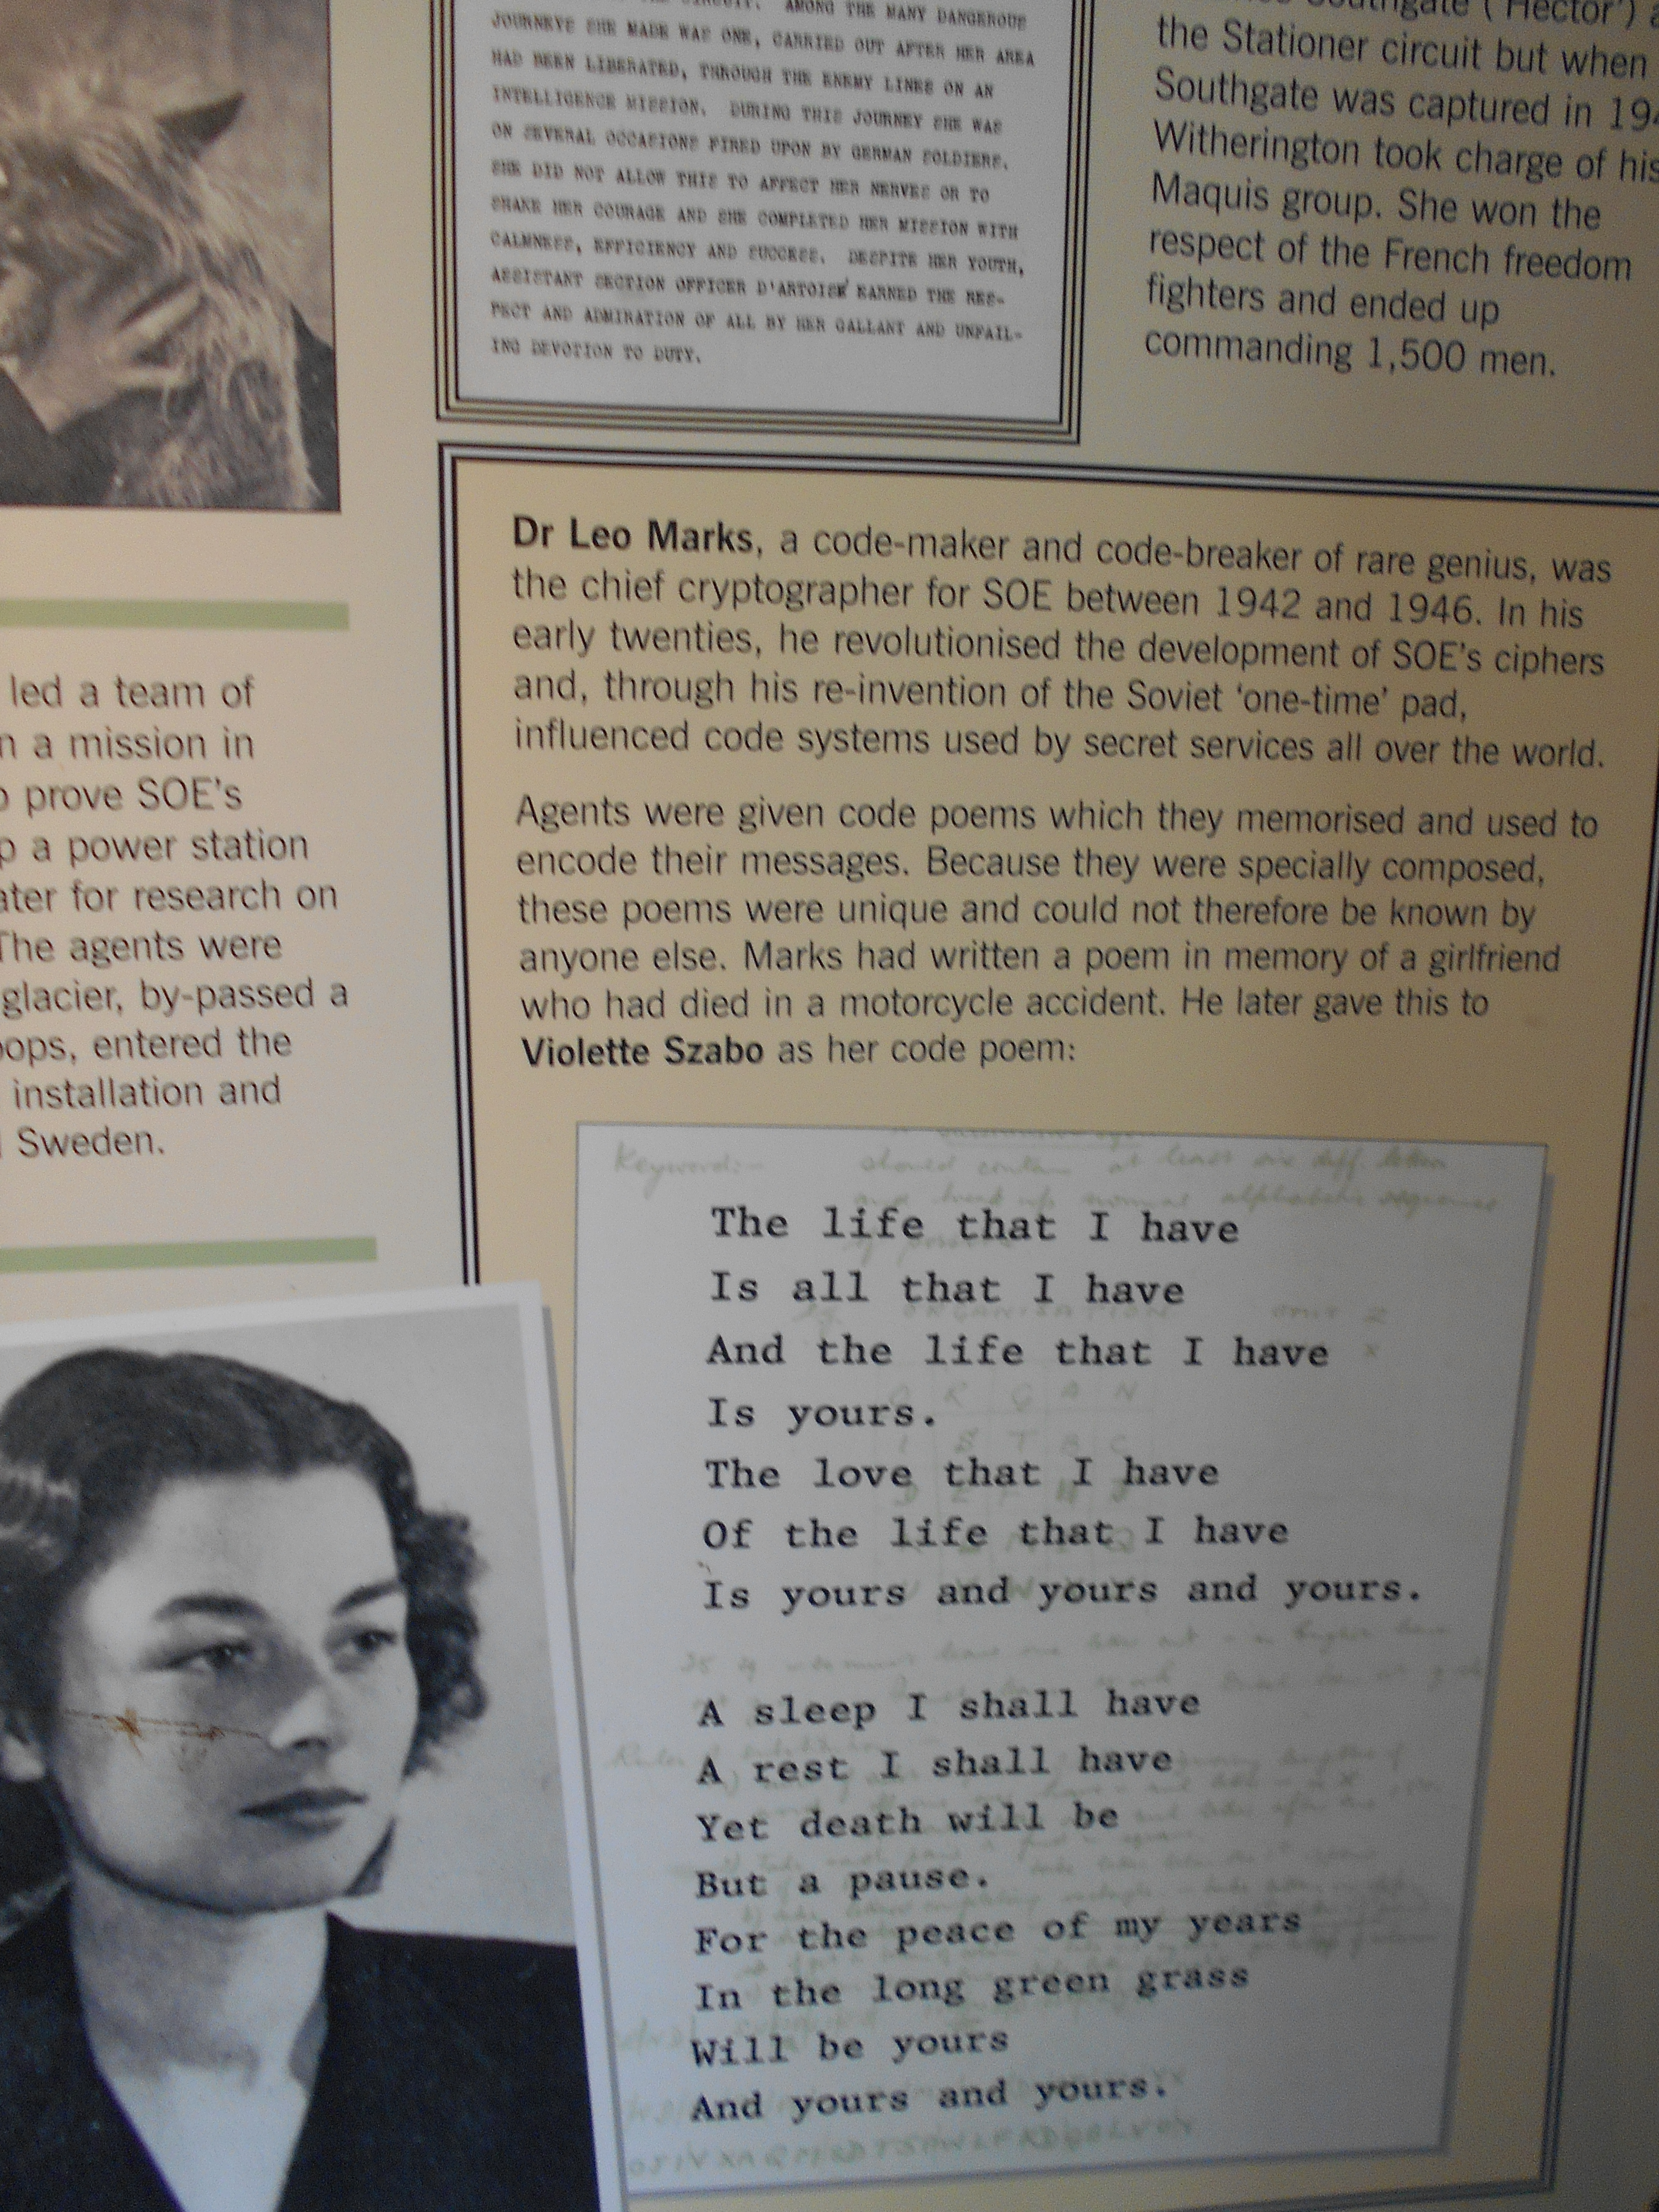 CIRCUIT. AMONG THE MANY DANGEROUS
JOURNEYS SHE MADE WAS ONE, CARRIED OUT AFTER HER AREA
HAD BEEN LIBERATED, THROUGH THE ENEMY LINES ON AN
INTELLIGENCE MISSION. DURING THIS JOURNEY SHE WAS
ON SEVERAL OCCASIONS FIRED UPON BY GERMAN SOLDIERS.
SHE DID NOT ALLOW THIS TO AFFECT HER NERVES OR TO
SHAKE HER COURAGE AND SHE COMPLETED HER MISSION WITH
CALMNESS, EFFICIENCY AND SUCCESS. DESPITE HER YOUTH,
ASSISTANT SECTION OFFICER D'ARTOIS EARNED THE RES-
PECT AND ADMIRATION OF ALL BY HER GALLANT AND UNFAIL-
ING DEVOTION TO DUTY.
Southgate ('Hector')
the Stationer circuit but when
Southgate was captured in 194
Witherington took charge of his
Maquis group. She won the
respect of the French freedom
fighters and ended up
commanding 1,500 men.
led a team of
a mission in
prove SOE's
a power station
for research on
The agents were
glacier, by-passed a
entered the
installation and
Sweden.
Dr Leo Marks, a code-maker and code-breaker of rare genius, was
the chief cryptographer for SOE between 1942 and 1946. In his
early twenties, he revolutionised the development of SOE's ciphers
and, through his re-invention of the Soviet 'one-time' pad,
influenced code systems used by secret services all over the world.
Agents were given code poems which they memorised and used to
encode their messages. Because they were specially composed,
these poems were unique and could not therefore be known by
anyone else. Marks had written a poem in memory of a girlfriend
who had died in a motorcycle accident. He later gave this to
Violette Szabo as her code poem:
Keyword:-
The life that I have
Is all that I have
And the life that I have
Is yours.
The love that I have
Of the life that I have
Is yours and yours and yours.
A sleep I shall have
A rest I shall have
Yet death will be
But a pause.
For the peace of my years
In the long green grass
Will be yours
And yours and yours.